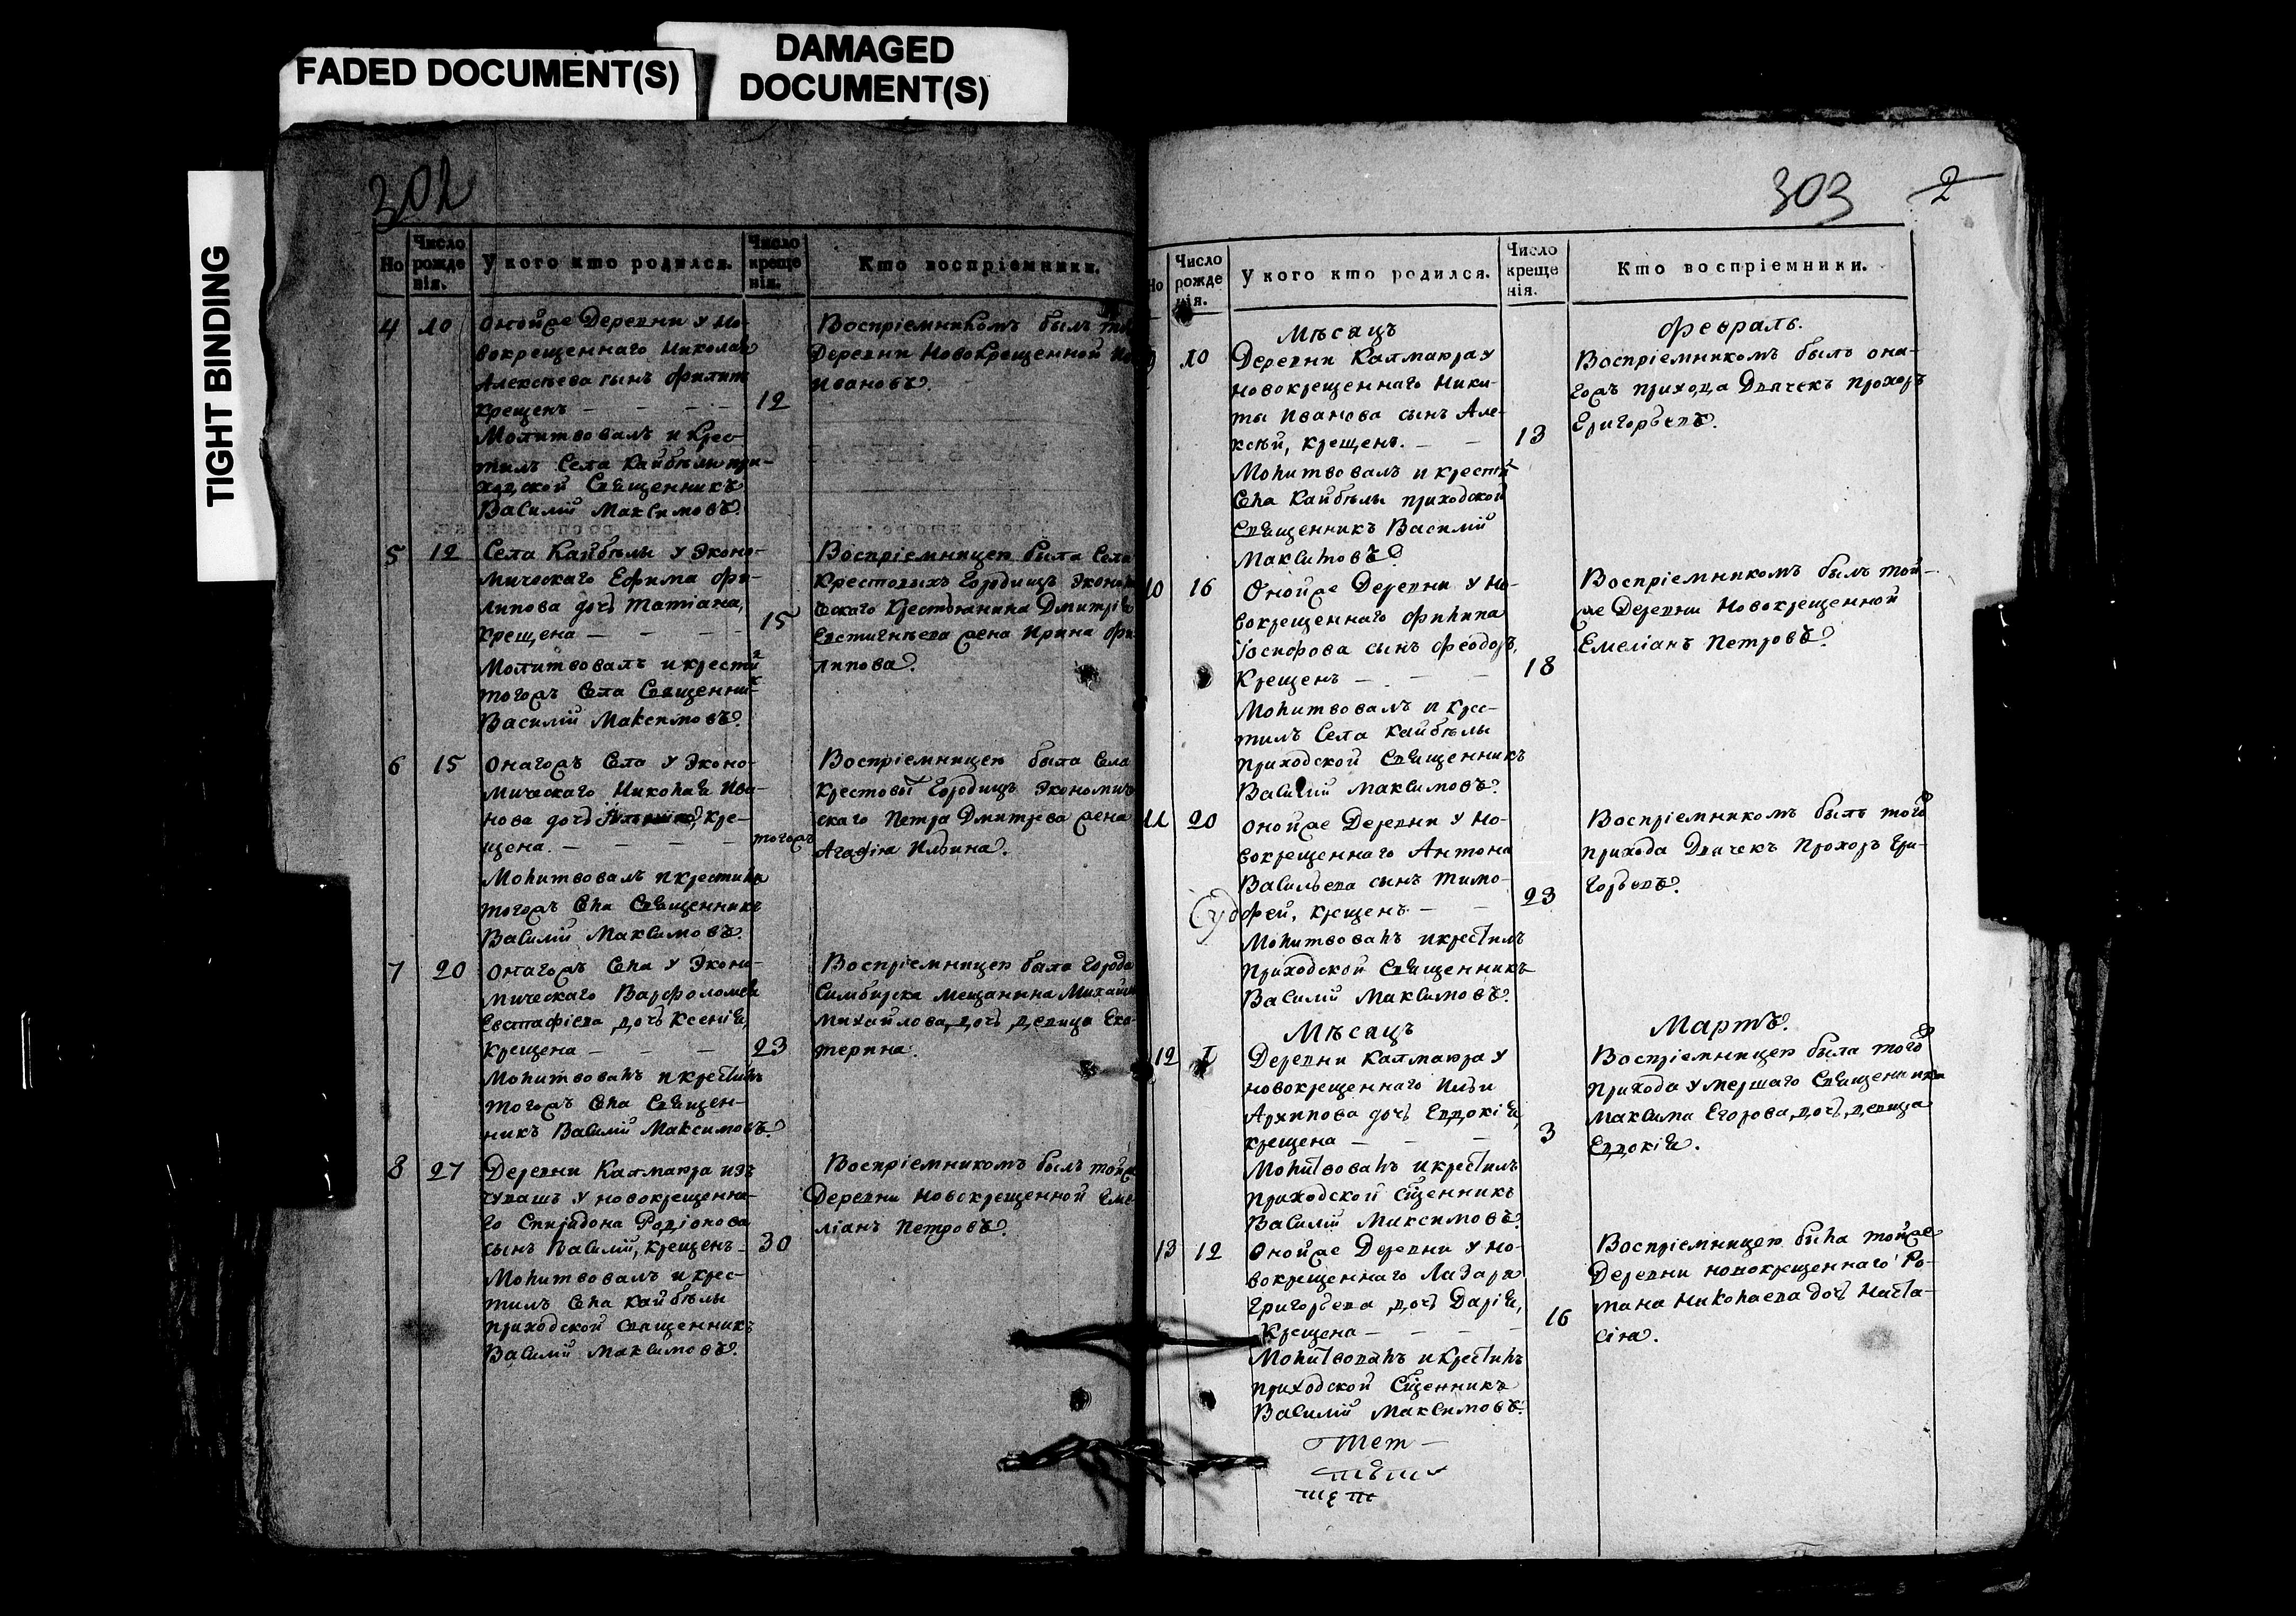 FADED DOCUMENT(S)
DAMAGED
DOCUMENT(S)
TIGHT BINDING
302
Но
Число
рожде
нія.
У кого кто родился.
Число
креще
нія.
Кто воспріемники.
4 10 Онойже Деревни у но-
вокрещеннаго Николая
Алексѣева сынъ Филипъ
крещенъ — — — 12
Молитвовалъ и крес-
тилъ Села Кайбѣлы при-
ходской Священникъ
Василій Максимовъ.
Воспріемникомъ былъ
Деревни Новокрещенной
Ивановъ.
5 12 Села Кайбѣлы у Эконо-
мическаго Ефима Фи-
липова дочь Татіана,
крещена — — — 15
Молитвовалъ и крести
тогожъ Села Священни
Василій Максимовъ.
Воспріемницею была Села
Крестовыхъ Городищъ Эконом
ескаго Крестьянина Дмитріа
Евстигнѣева жена Ирина Фи
липова.
6 15 Онагожъ Села у Эконо-
мическаго Николая Ива-
нова дочь кре-
щена — — — — тогожъ
Молитвовалъ и крестилъ
тогожъ Села Священникъ
Василій Максимовъ.
Воспріемницею была Села
Крестовой Городищъ Экономич
скаго Петра Дмитріева жена
Агафіа Ильина.
7 20 Онагожъ Села у Эконо-
мическаго Варфоломея
Евстафіева дочь Ксеніа,
крещена — — — 23
Молитвовалъ и крестилъ
тогожъ Села Священ-
никъ Василій Максимовъ.
Воспріемницею была Города
Симбирска Мещанина Михаила
Михайлова дочь девица Ека-
терина.
8 27 Деревни Калмаюра изъ
чувашъ у новокрещенна-
го Спиридона Родіонова
сынъ Василій, крещенъ — 30
Молитвовалъ и крес-
тилъ Села Кайбѣлы
приходской священникъ
Василій Максимовъ.
Воспріемникомъ былъ тойже
Деревни Новокрещенной Еме
ліанъ Петровъ.
303 2
Но
Число
рожде
нія.
У кого кто родился.
Число
креще
нія.
Кто воспріемники.
Мѣсяцъ Февраль.
9 10 Деревни Калмаюра у
новокрещеннаго Ники-
ты Иванова сынъ Але-
ксѣй, крещенъ. — — 13
Молитвовалъ и крести
Села Кайбѣлы приходской
Священникъ Василій
Максимовъ
Воспріемникомъ былъ она-
гожъ прихода Дьячекъ Прохоръ
Григорьевъ.
10 16 Онойже Деревни у но-
вокрещеннаго Филипа
Іосифова сынъ Феодоръ,
Крещенъ — — — 18
Молитвовалъ и крес-
тилъ Села Кайбѣлы
приходской Священникъ
Василій Максимовъ.
Воспріемникомъ былъ той-
же Деревни Новокрещенной
Емеліанъ Петровъ.
11 20 Онойже Деревни у но-
вокрещеннаго Антона
Васильева сынъ Тимо-
фей, крещенъ — — 23
Молитвовалъ и крестилъ
приходской Священникъ
Василій Максимовъ.
Воспріемникомъ былъ того
прихода Дьячекъ Прохоръ Гри-
горьевъ.
Мѣсяцъ Мартъ.
12 1 Деревни Калмаюра у
новокрещеннаго Ильи
Архипова дочь Евдокіа,
крещена — — — 3
Молитвовалъ и крестилъ
приходской Сщенникъ
Василій Максимовъ.
Воспріемницею была того
прихода умершаго Священника
Максима Егорова дочь девица
Евдокіа.
13 12 Онойже Деревни у но-
вокрещеннаго Лазаря
Григорьева дочь Даріа,
Крещена — — — 16
Молитвовалъ и Крестилъ
приходской Сщенникъ
Василій Максимовъ.
Воспріемницею была тойже
Деревни новокрещеннаго Ро-
мана Николаева дочь Наста-
сіа.